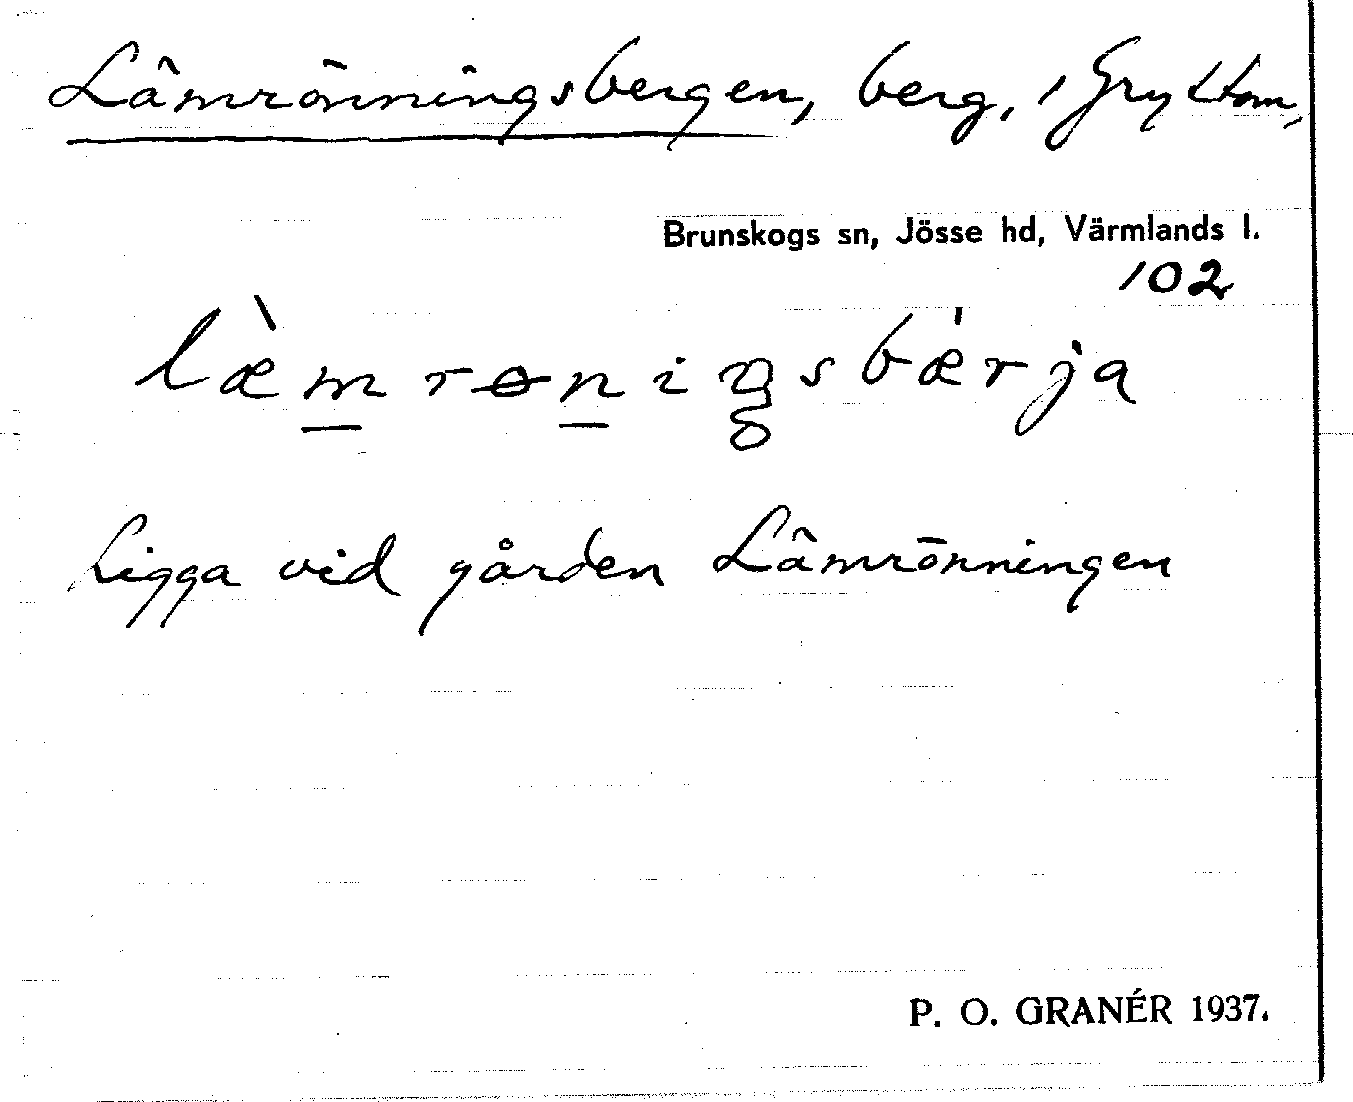 Lämrönningsbergen, berg, i Gryttom,
Brunskogs sn, Jösse hd, Värmlands l.
102
læ̀mrɵniŋsbærja
Ligga vid gården Lämrönningen
P. O. GRANÉR 1937.